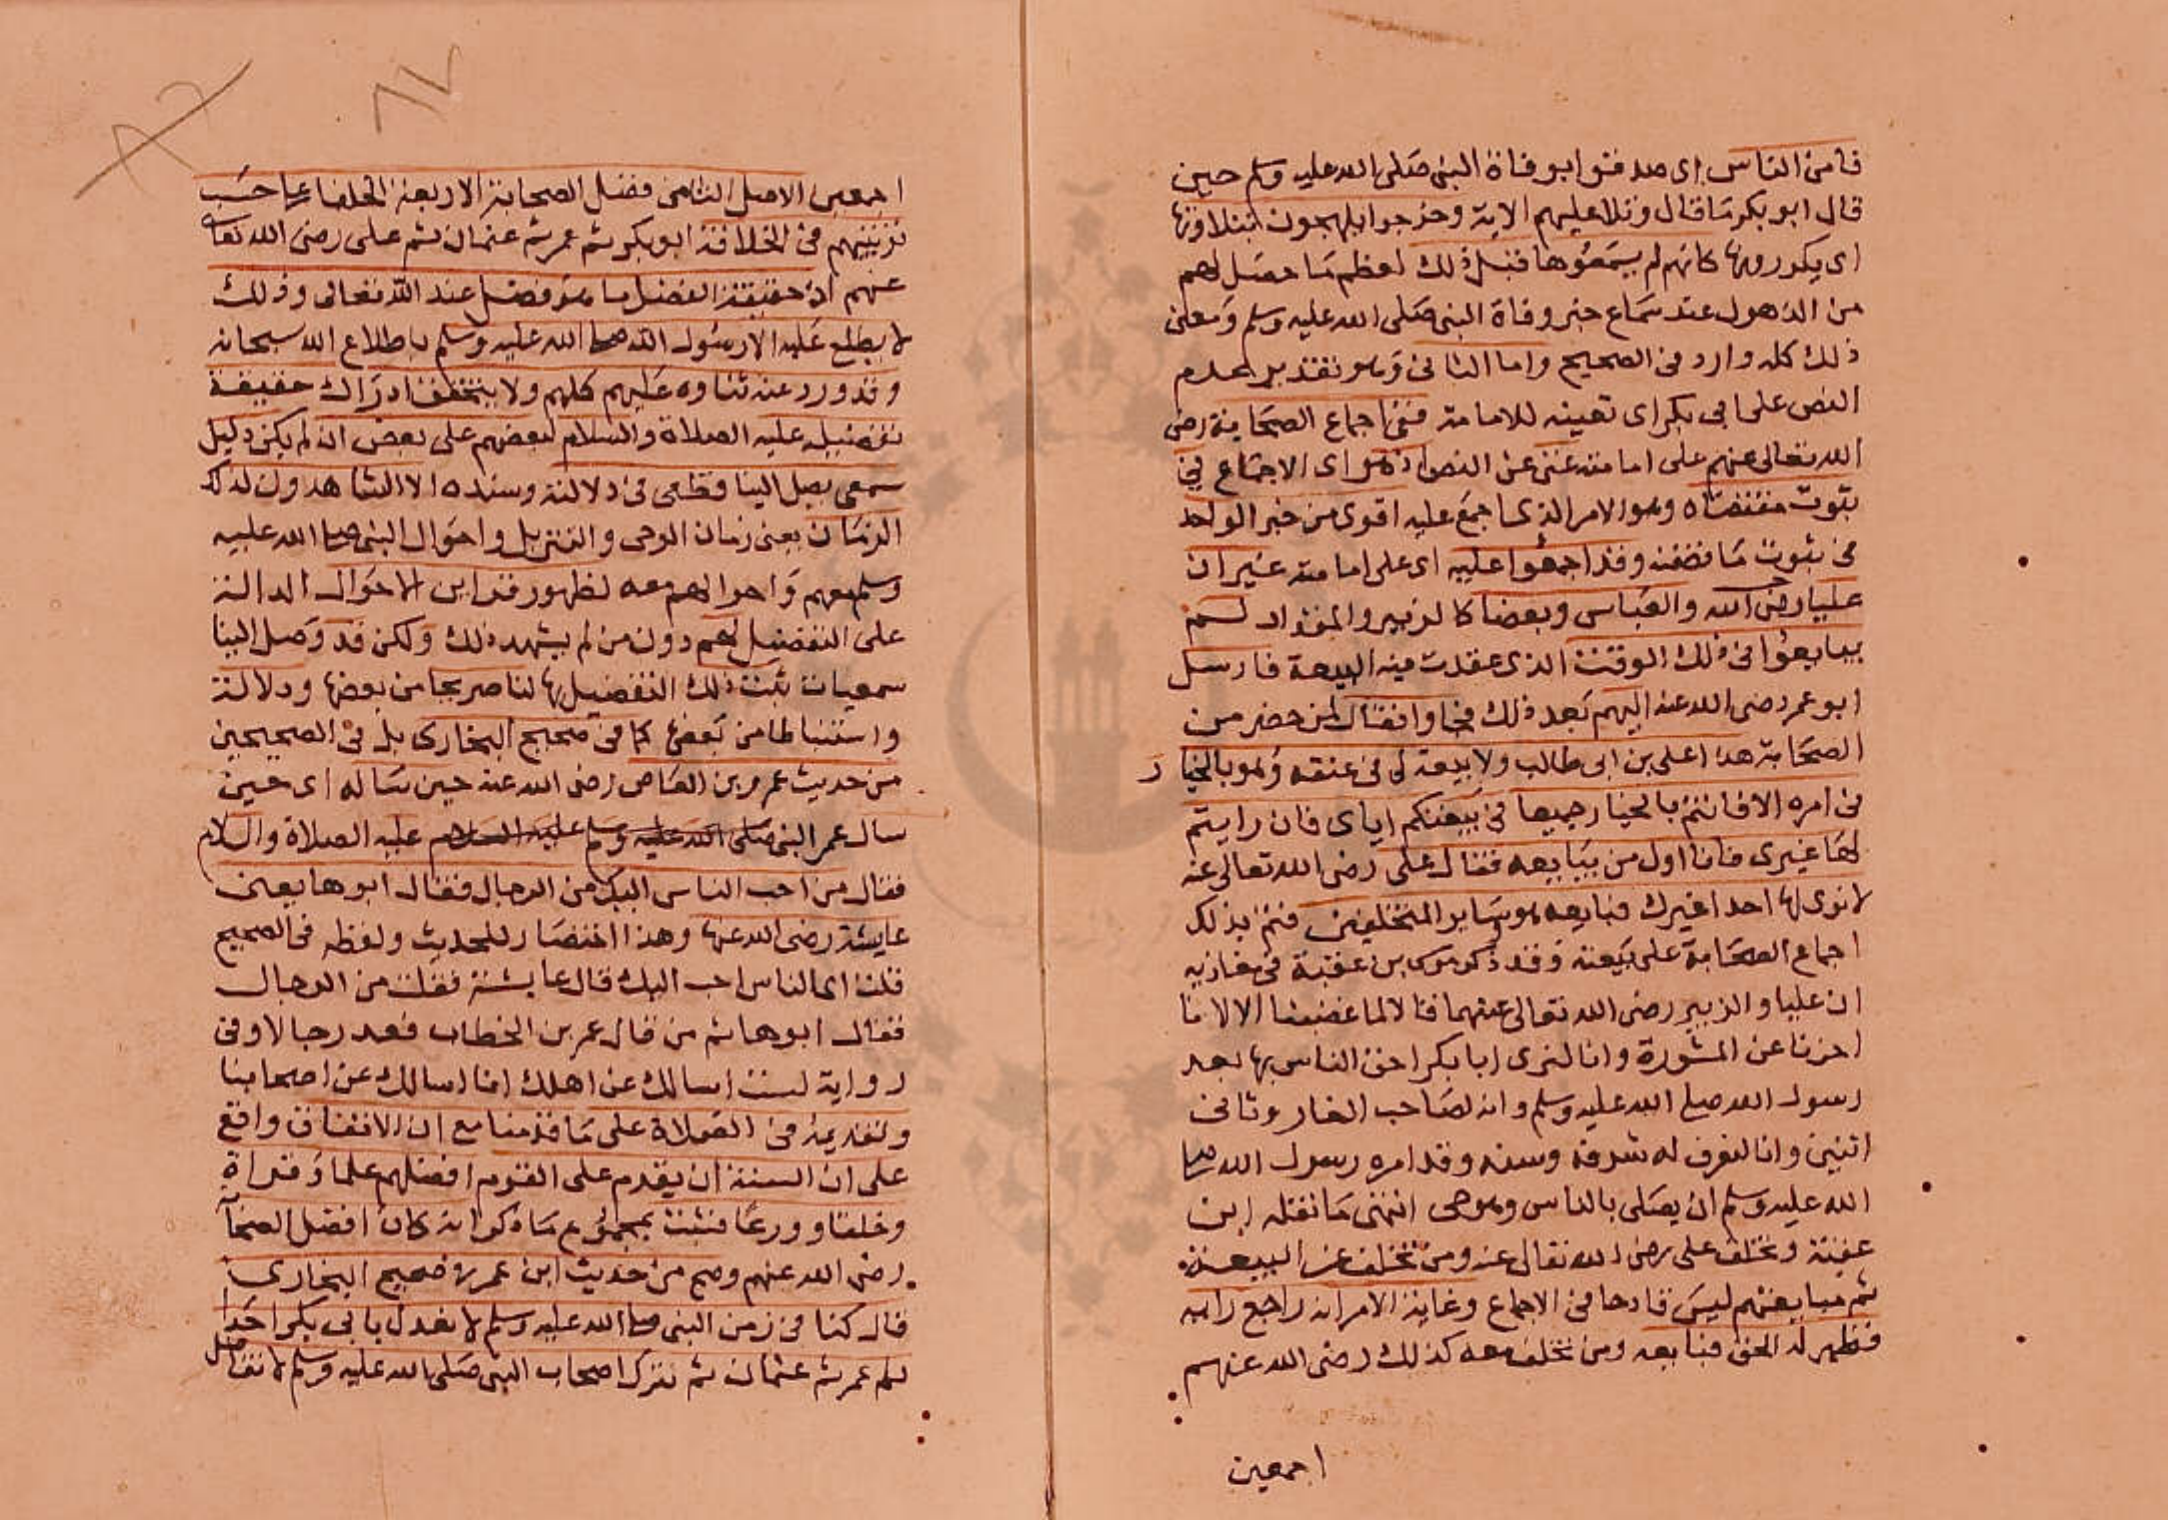 فامن الناس اى صدقوا بوفاة النبى صلى الله عليه وسلم حين
قال ابو بكر ما قال وتلا عليهم الاية وخرجوا يلهجون بتلاوتها
اى يكررونها كانهم لم يسمعوها قبل ذلك لعظم ما حصل لهم
من الذهول عند سماع خبر وفاة النبى صلى الله عليه وسلم ومعنى
ذلك كله وارد فى الصحيح واما الثانى وهو تقدير عدم
النص على ابى بكر اى تعيينه للامامة ففى اجماع الصحابة رضى
الله تعالى عنهم على امامته غنى عن النص اذ هو اى الاجماع فى
ثبوت مقتضاه وهو الامر الذى اجمع عليه اقوى من خبر الواحد
فى ثبوت ما تضمنه وقد اجمعوا عليه اى على امامته غير ان
عليا رضى الله والعباس وبعضا كالزبير والمقداد لم
يبايعوا فى ذلك الوقت الذى عقدت فيه البيعة فارسل
ابو عمر رضى الله عنه اليهم بعد ذلك فجاوا فقال لمن حضر من
الصحابة هذا على بن ابى طالب ولا بيعة لى فى عنقه وهو بالخيار
فى امره الا فانتم بالخيار جميعا فى بيعتكم اياى فان رايتم
لها غيرى فانا اول من يبايعه فقال على رضى الله تعالى عنه
لا نرى لها احدا غيرك فبايعه هو وساير المتخلفين فتم بذلك
اجماع الصحابة على بيعته وقد ذكر موسى بن عقبة فى مغازيه
ان عليا والزبير رضى الله تعالى عنهما قالا لما غضبنا الا لانا
اخرنا عن المشورة وانا لنرى ابا بكر احق الناس بها بعد
رسول الله صلى الله عليه وسلم وانه لصاحب الغار وثانى
اثنين وانا لنعرف له شرفه وسنه وقد امره رسول الله صلى
الله عليه وسلم ان يصلى بالناس وهو حى انتهى ما نقله ابن
عقبة وتخلف على رضى الله تعالى عنه ومن تخلف عن البيعة
ثم مبايعتهم ليس قادحا فى الاجماع وغاية الامر انه راجع رايه
فظهر له الحق فبايعه ومن تخلف معه كذلك رضى الله عنهم
اجمعين
٨٧
اجمعين الاصل الثامن فضل الصحابة الاربعة الخلفا على حسب
ترتيبهم فى الخلافة ابو بكر ثم عمر ثم عثمان ثم على رضى الله تعالى
عنهم اذ حقيقة الفضل ما هو فضل عند الله تعالى وذلك
لا يطلع عليه الا رسول الله صلى الله عليه وسلم باطلاع الله سبحانه
وقد ورد عنه ثناوه عليهم كلهم ولا يتحقق ادراك حقيقة
تفضيله عليه الصلاة والسلام لبعضهم على بعض ان لم يكن دليل
سمعى يصل الينا قطعى فى دلالته وسنده الا الشاهدون لذلك
الزمان يعنى زمان الوحى والتنزيل واحوال النبى صلى الله عليه
وسلم معهم واحوالهم معه لظهور قراين الاحوال الدالة
على التفضيل لهم دون من لم يشهد ذلك ولكن قد وصل الينا
سمعيات ثبت ذلك التفضيل بها لنا صريحا من بعضها ودلالة
واستنباطا من بعض كما فى صحيح البخارى بل فى الصحيحين
من حديث عمرو بن العاص رضى الله عنه حين ساله اى حين
سال عمر النبى صلى الله عليه وسلم عليه السلام عليه الصلاة والسلام
فقال من احب الناس اليك من الرجال فقال ابوها يعنى
عايشة رضى الله عنها وهذا اختصار للحديث ولفظه فى الصحيح
قلت اى الناس احب اليك قال عايشة فقلت من الرجال
فقال ابوها ثم من قال عمر بن الخطاب فعد رجالا وفى
رواية لست اسالك عن اهلك انما اسالك عن اصحابنا
وتقديمه فى الصلاة على ما قدمنا مع ان الاتفاق واقع
على ان السنة ان يقدم على القوم افضلهم علما وقراة
وخلقا وورعا فثبت بمجموع ما ذكر انه كان افضل الصحابة
رضى الله عنهم وصح من حديث ابن عمر فى صحيح البخارى
قال كنا فى زمن النبى صلى الله عليه وسلم لا نعدل بابى بكر احدا
ثم عمر ثم عثمان ثم نترك اصحاب النبى صلى الله عليه وسلم لا نفاضل